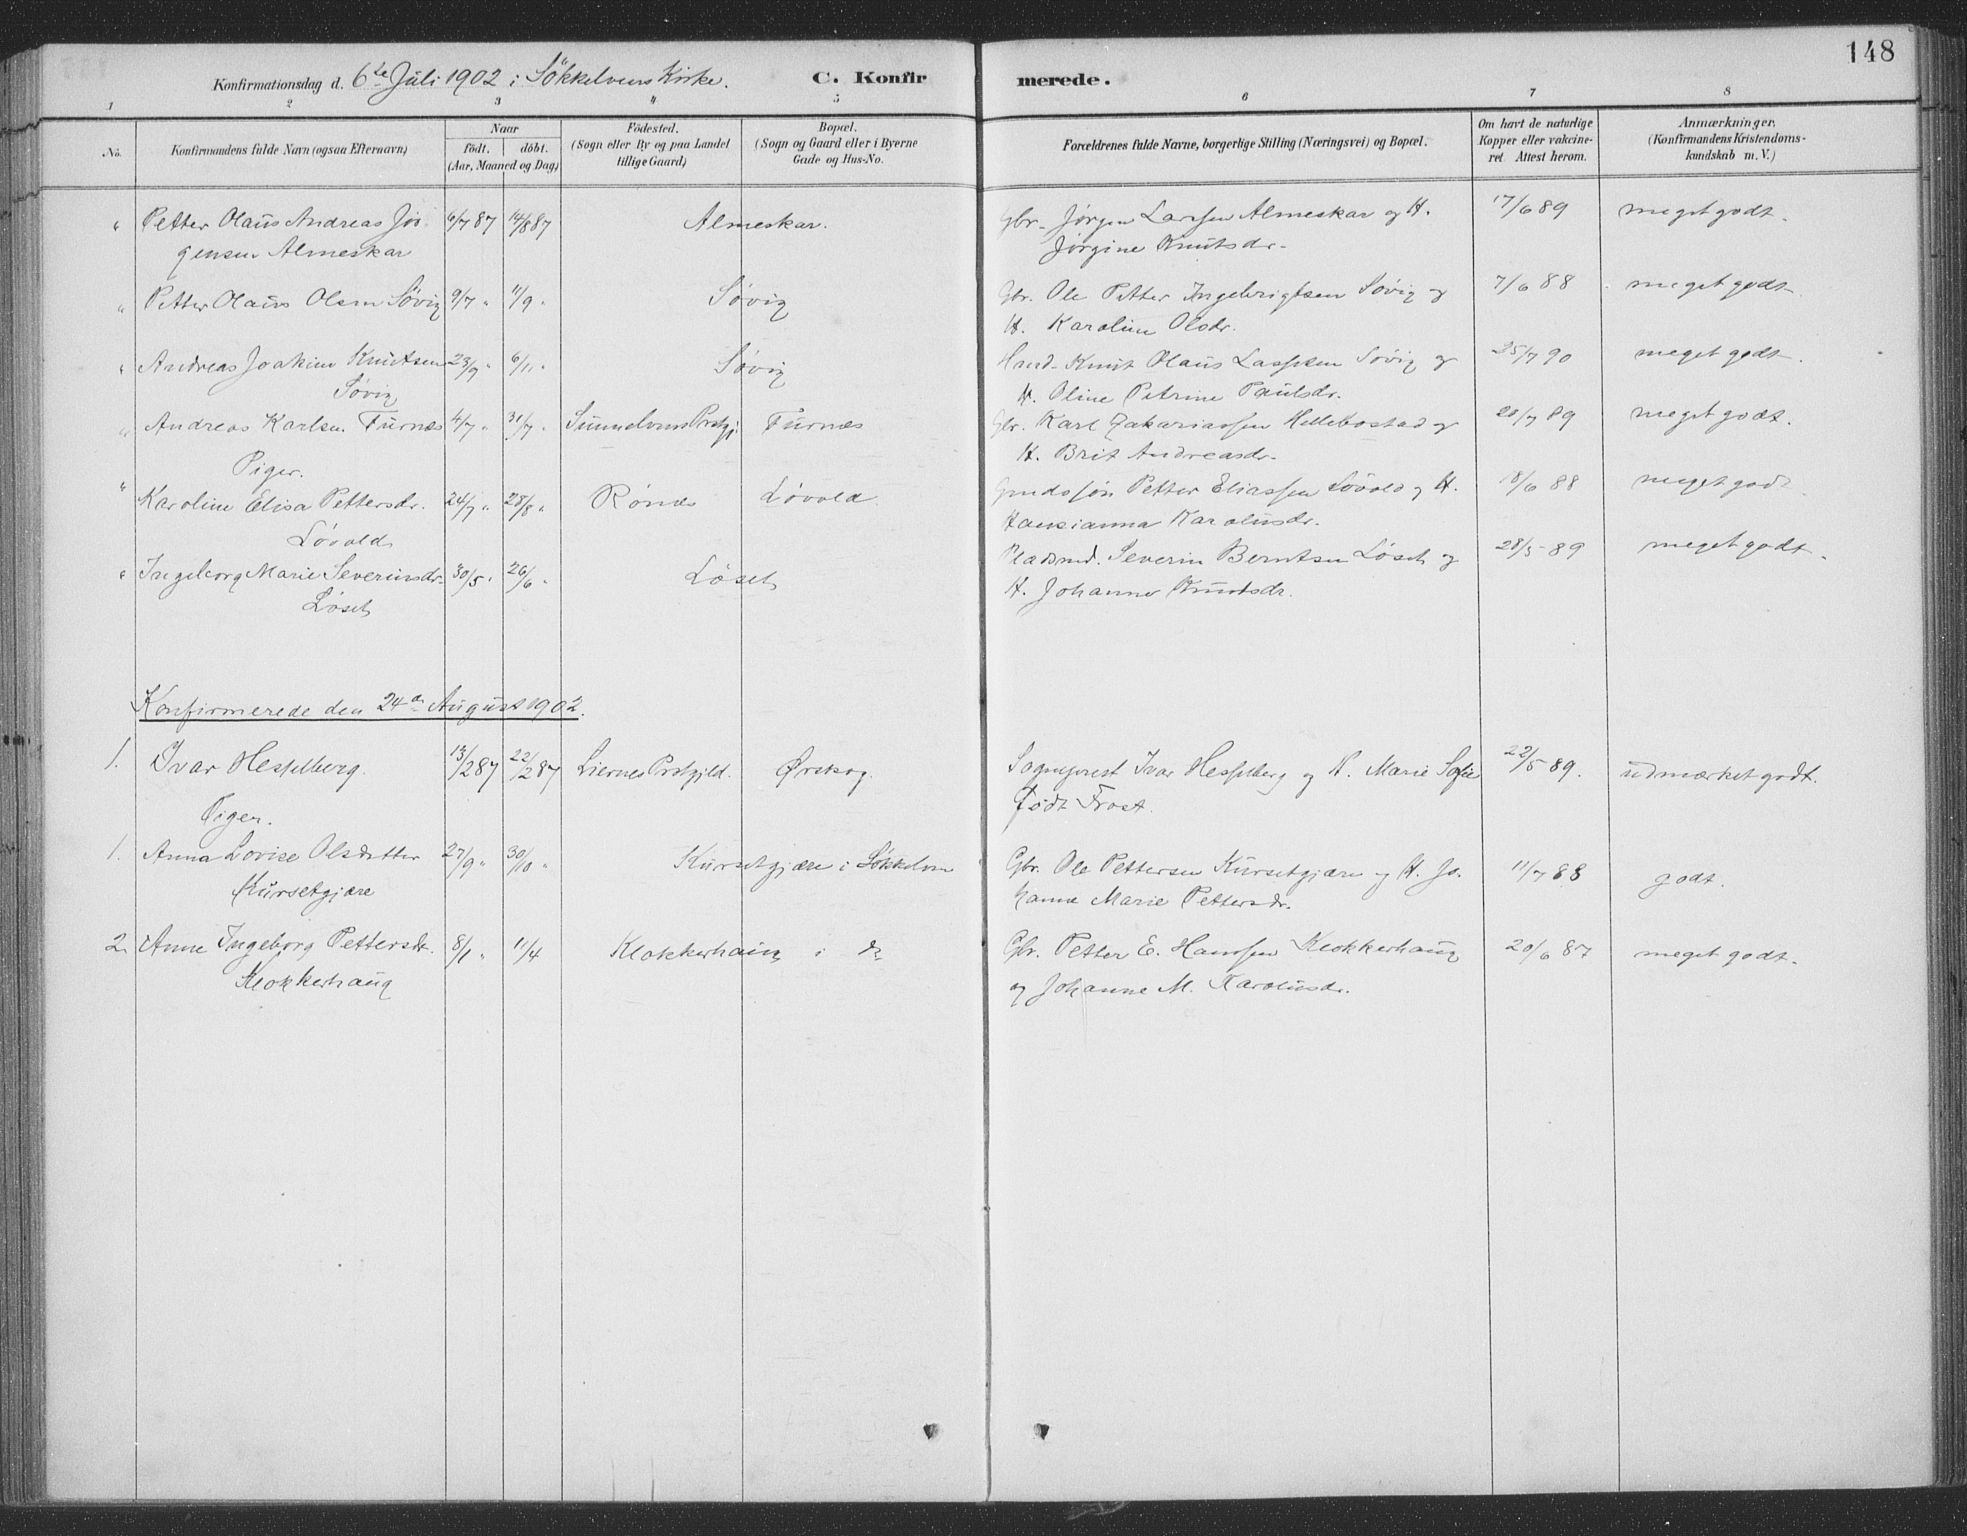 148
Konfirmationsdag d. 6te Juli 1902 i Søkkelvens Kirke. C. Konfirmerede.
1 2 3 4 5 6 7 8
No. Konfirmandens fulde Navn (ogsaa Efternavn) Naar födt. döbt. (Aar, Maaned og Dag) Födested. (Sogn eller By og paa Landet tillige Gaard) Bopæl. (Sogn og Gaard eller i Byerne Gade og Hus-No. Forældrenes fulde Navne, borgerlige Stilling (Næringsvei) og Bopæl. Om havt de naturlige Kopper eller vakcineret Attest herom. Anmærkninger. (Konfirmandens Kristendomskundskab m. V.)
" Petter Olaus Andreas Jör- 6/7 87 14/8 87 Almeskar. Gbr. Jørgen Larssen Almeskar og H. 17/6 89 meget godt.
gensen Almeskar Jørgine Knutsdr.
" Petter Olaus Olsen Søvig 9/7 " 11/9 " Søvig Gbr. Ole Petter Ingebrigtsen Søvig og 7/6 88 meget godt.
H. Karoline Olsdr.
" Andreas Joakim Knutsen 23/9 " 6/11 " Søvig Knut Olaus Lassesen Søvig og 25/7 90 meget godt.
Søvig H. Oline Petrine Paulsdr.
" Andreas Karlsen Furnes 4/7 " 31/7 " Sunnelvens Prstgj. Furnes Gbr. Karl Zakariassen Hellebostad og 20/7 89 meget godt.
Piger. H. Brit Andreasdr.
" Karoline Elisa Pettersdr. 24/7 " 28/8 " Rønes Løvold. Petter Eliassen Løvold og H. 18/6 88 meget godt.
Løvold Hansianna Karolusdr.
" Ingeborg Marie Severinsdr. 30/5 " 26/6 " Løset Pladsmd. Severin Berntsen Løset og 28/5 89 meget godt.
Løset H. Johanne Knutsdr.
Konfirmerede den 24de August 1902.
1. Ivar Hesselberg. 13/2 87 22/2 87 Liernes Prstgjld. Ørskog. Sogneprest Ivar Hesselberg og H. Marie Sofie 22/5 89. udmærket godt.
Piger. født Frost.
1. Anna Lovise Olsdatter 27/9 " 30/10 " Kursetgjære i Søkkelven Gbr. Ole Pettersen Kursetgjære og H. Jo- 11/7 88 godt.
Kursetgjære hanne Marie Pettersdr.
2. Anne Ingeborg Pettersdt. 8/1 " 11/4 Klokkerhaug i do Gbr. Petter E. Hanssen Klokkerhaug 20/6 87 meget godt.
Klokkerhaug og Johanne M. Karolusdr.